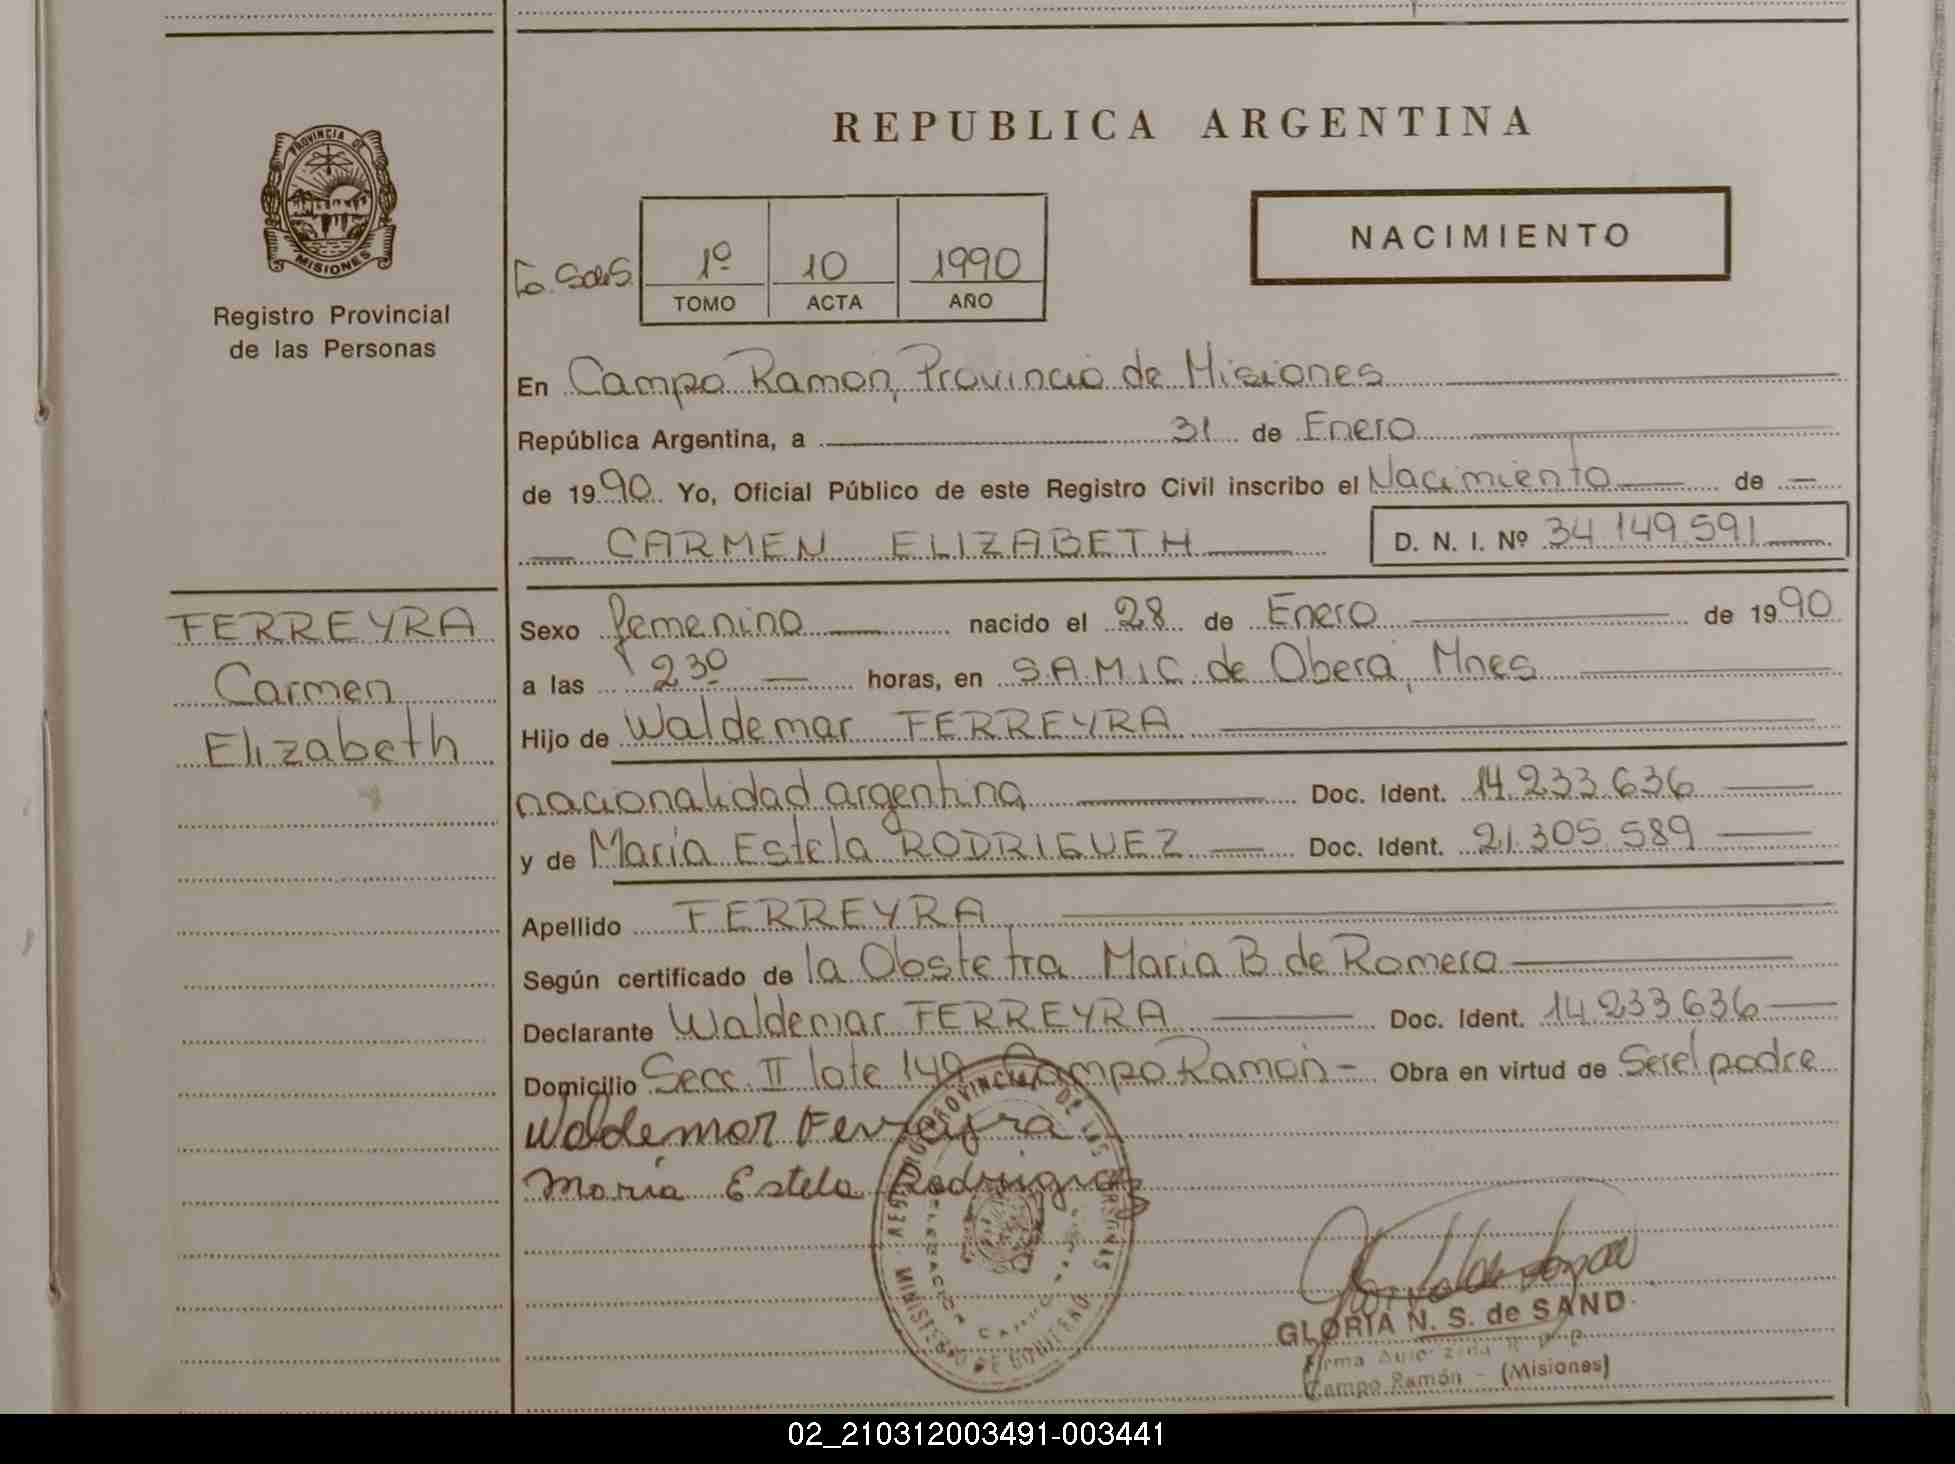 PROVINCIA DE
MISIONES
Registro Provincial
de las Personas
REPUBLICA ARGENTINA
NACIMIENTO
1º 10 1990
TOMO ACTA AÑO
En Campo Ramón, Provincia de Misiones
República Argentina, a 31 de Enero
de 1990. Yo, Oficial Público de este Registro Civil inscribo el Nacimiento de
CARMEN ELIZABETH D. N. I. Nº 34.149.591
FERREYRA
Carmen
Elizabeth
Sexo femenino nacido el 28 de Enero de 1990
a las 2 30 horas, en S.A.M.I.C. de Oberá, Mnes
Hijo de Waldemar FERREYRA
nacionalidad argentina Doc. Ident. 14.233.636
y de María Estela RODRIGUEZ Doc. Ident. 21.305.589
Apellido FERREYRA
Según certificado de la Obstetra Maria B. de Romero
Declarante Waldemar FERREYRA Doc. Ident. 14.233.636
Domicilio Secc. II lote 149 Campo Ramón - Obra en virtud de Ser el padre
Waldemar Ferreyra
María Estela Rodriguez
REGISTRO PROVINCIAL DE LAS PERSONAS
MINISTERIO DE GOBIERNO
GLORIA N. S. de SAND
Firma Autorizada R. P. P.
Campo Ramón - (Misiones)
02_210312003491-003441